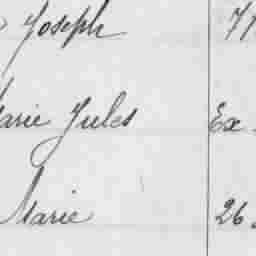 Joseph 71
Marie Jules Ex
Marie 26